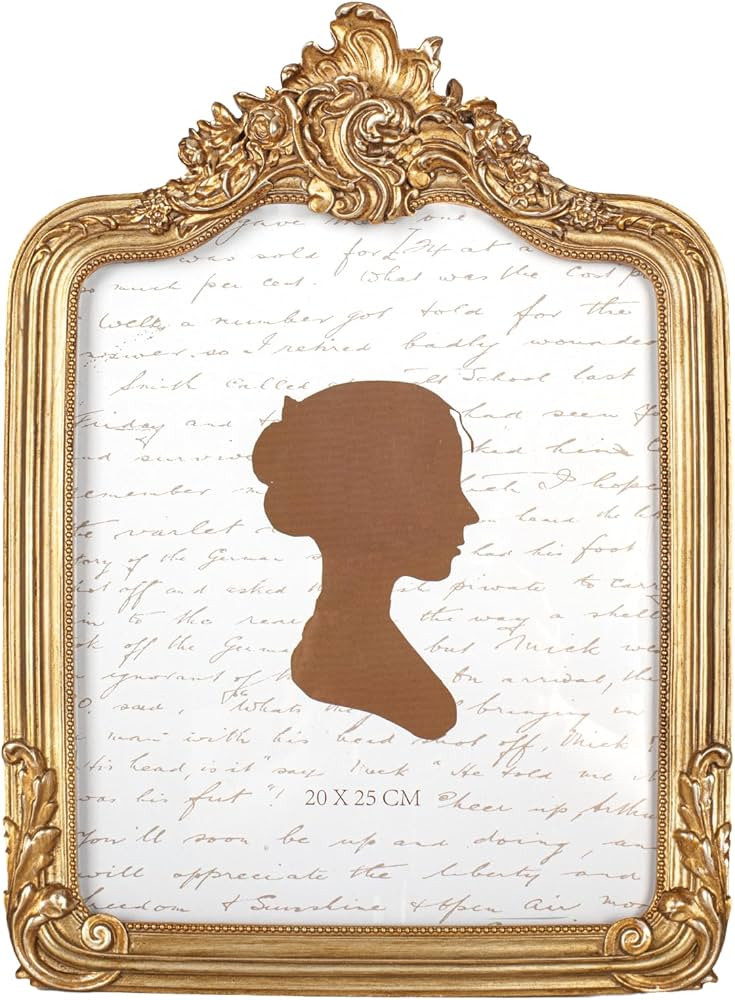 gave me one
was sold for £74 at a
so much per cent. What was the cost p
Well, a number got told for the
answer. so I retired badly wounde
Smith called at School last
Friday and had seen
and surviv ked him
emember m which I hope
the varlet heard the
tory of the German had his foot
hot off and asked private to carry
in to the rear the way a shell
ok off the Germ but Mick we
ignorant of th On arrival, the
O. said, "Whats the bringing in
a man with his head shot off, Mick?
His head, is it" say Mick "He told me it
was his fut"! Cheer up, Arthu
20 X 25 CM
You'll soon be up and doing, an
will appreciate the liberty and
freedom & Sunshine & open air mor